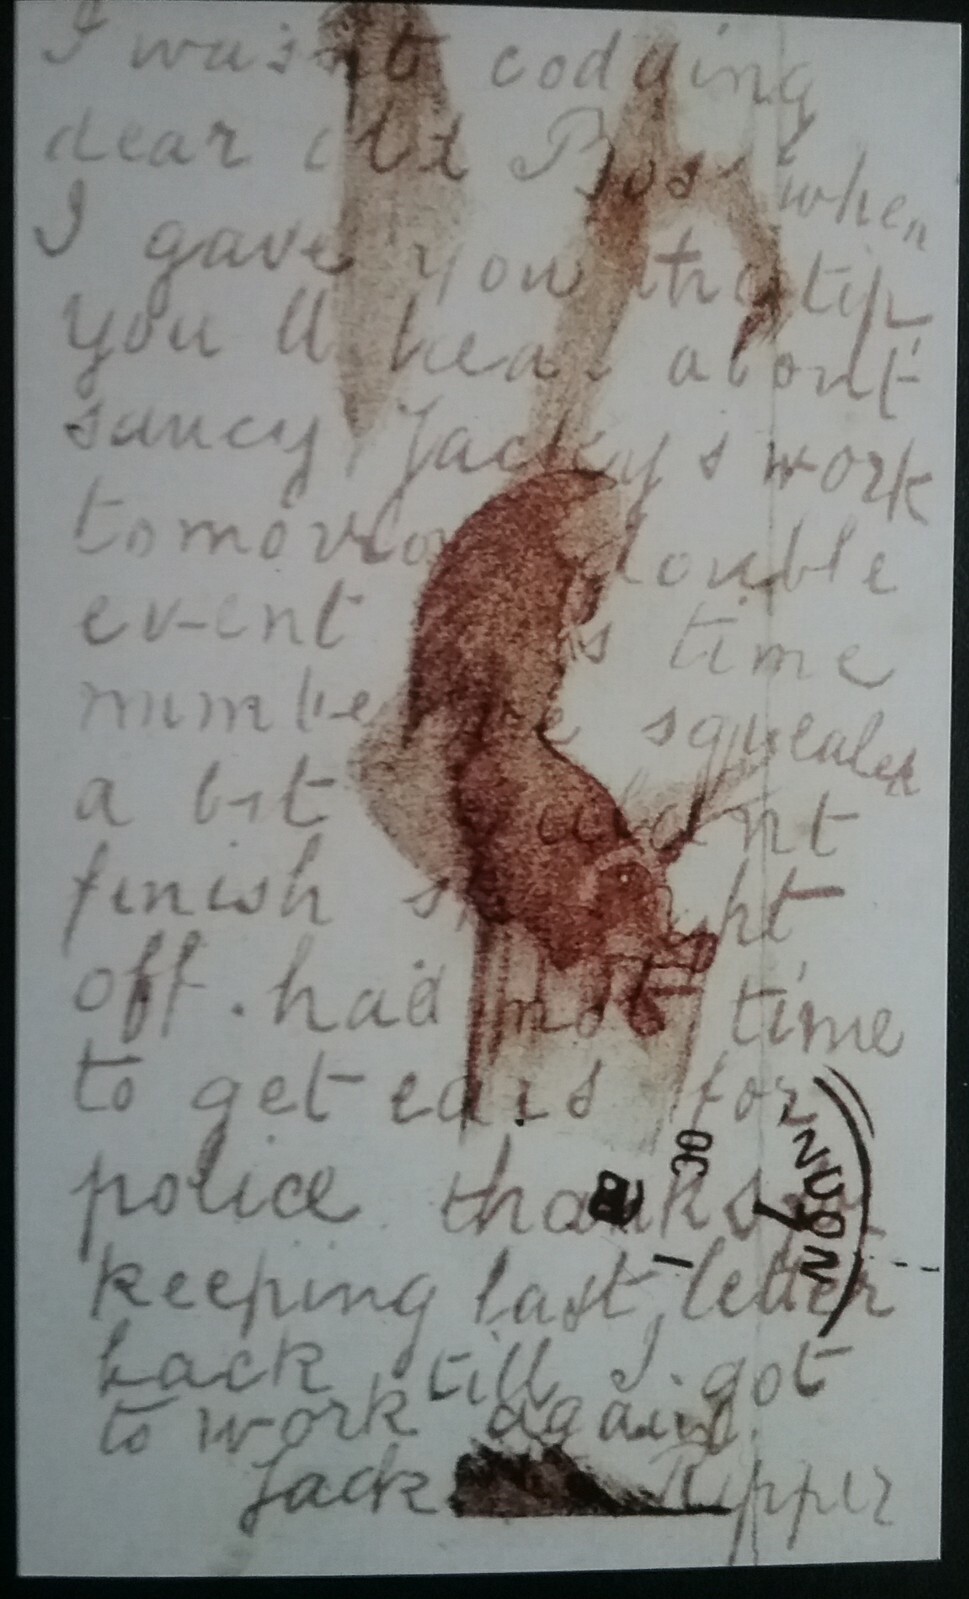 I wasnt codding
dear old Boss when
I gave you the tip
you ll hear about
saucy Jackys work
tomorrow double
event this time
number one squealed
a bit couldnt
finish straight
off. had not time
to get ears for
police thanks for
keeping last letter
back till I got
to work again.
Jack Ripper
30
1